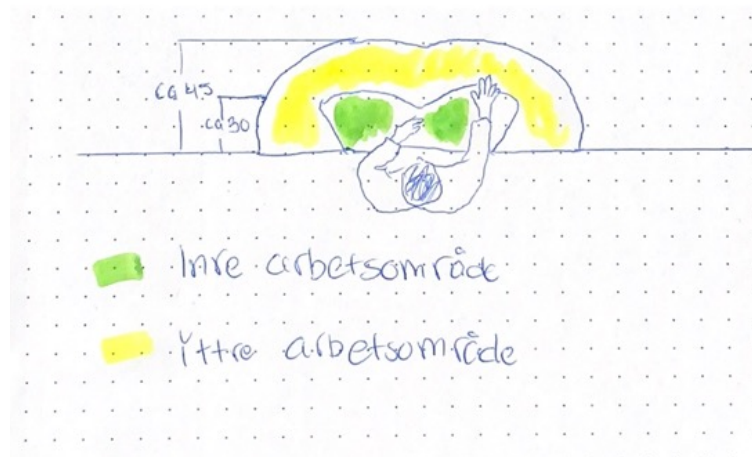 ca 45
ca 30
Inre arbetsområde
Yttre arbetsområde